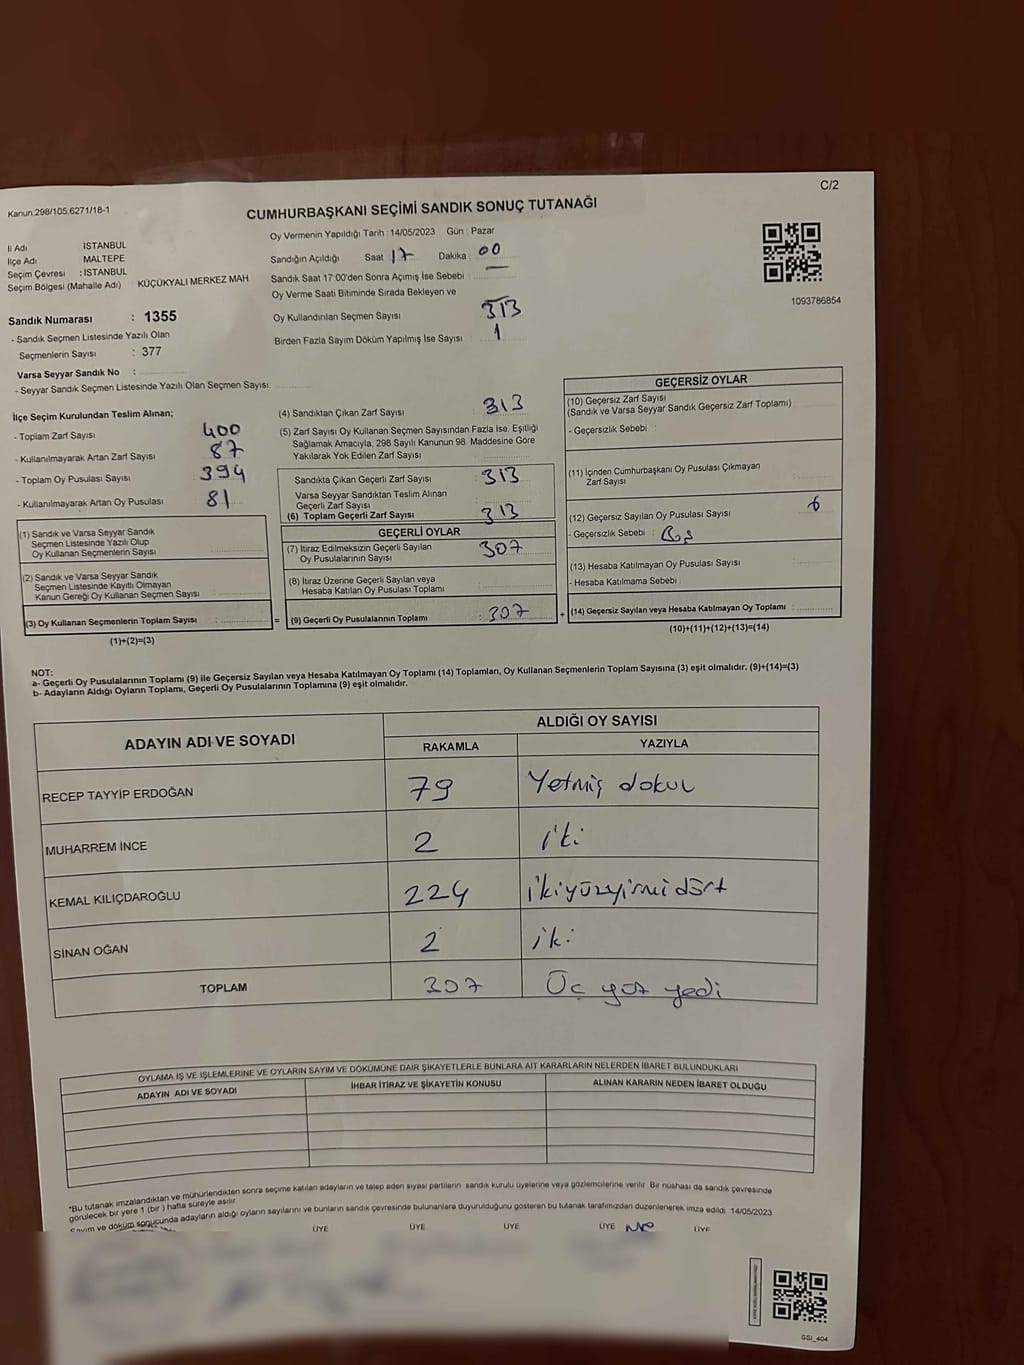 C/2
Kanun:298/105;6271/18-1
CUMHURBAŞKANI SEÇİMİ SANDIK SONUÇ TUTANAĞI
İl Adı İSTANBUL
İlçe Adı MALTEPE
Seçim Çevresi : İSTANBUL
Seçim Bölgesi (Mahalle Adı) KÜÇÜKYALI MERKEZ MAH
Oy Vermenin Yapıldığı Tarih : 14/05/2023 Gün : Pazar
Sandığın Açıldığı Saat 17 Dakika 00
Sandık Saat 17:00'den Sonra Açımış İse Sebebi
Oy Verme Saati Bitiminde Sırada Bekleyen ve
Oy Kullandırılan Seçmen Sayısı 313
Birden Fazla Sayım Döküm Yapılmış İse Sayısı 1
1093786854
Sandık Numarası : 1355
- Sandık Seçmen Listesinde Yazılı Olan
Seçmenlerin Sayısı : 377
Varsa Seyyar Sandık No :
- Seyyar Sandık Seçmen Listesinde Yazılı Olan Seçmen Sayısı:
İlçe Seçim Kurulundan Teslim Alınan;
- Toplam Zarf Sayısı 400
- Kullanılmayarak Artan Zarf Sayısı 87
- Toplam Oy Pusulası Sayısı 394
- Kullanılmayarak Artan Oy Pusulası 81
(1) Sandık ve Varsa Seyyar Sandık
Seçmen Listesinde Yazılı Olup
Oy Kullanan Seçmenlerin Sayısı
(2) Sandık ve Varsa Seyyar Sandık
Seçmen Listesinde Kayıtlı Olmayan
Kanun Gereği Oy Kullanan Seçmen Sayısı
(3) Oy Kullanan Seçmenlerin Toplam Sayısı :
(1)+(2)=(3)
(4) Sandıktan Çıkan Zarf Sayısı 313
(5) Zarf Sayısı Oy Kullanan Seçmen Sayısından Fazla İse, Eşitliği
Sağlamak Amacıyla, 298 Sayılı Kanunun 98. Maddesine Göre
Yakılarak Yok Edilen Zarf Sayısı
Sandıkta Çıkan Geçerli Zarf Sayısı 313
Varsa Seyyar Sandıktan Teslim Alınan
Geçerli Zarf Sayısı
(6) Toplam Geçerli Zarf Sayısı 313
GEÇERLİ OYLAR
(7) İtiraz Edilmeksizin Geçerli Sayılan
Oy Pusulalarının Sayısı 307
(8) İtiraz Üzerine Geçerli Sayılan veya
Hesaba Katılan Oy Pusulası Toplamı
= (9) Geçerli Oy Pusulalarının Toplamı : 307 +
GEÇERSİZ OYLAR
(10) Geçersiz Zarf Sayısı
(Sandık ve Varsa Seyyar Sandık Geçersiz Zarf Toplamı)
- Geçersizlik Sebebi :
(11) İçinden Cumhurbaşkanı Oy Pusulası Çıkmayan
Zarf Sayısı
(12) Geçersiz Sayılan Oy Pusulası Sayısı 6
- Geçersizlik Sebebi : Boş
(13) Hesaba Katılmayan Oy Pusulası Sayısı
- Hesaba Katılmama Sebebi
(14) Geçersiz Sayılan veya Hesaba Katılmayan Oy Toplamı :
(10)+(11)+(12)+(13)=(14)
NOT:
a- Geçerli Oy Pusulalarının Toplamı (9) ile Geçersiz Sayılan veya Hesaba Katılmayan Oy Toplamı (14) Toplamları, Oy Kullanan Seçmenlerin Toplam Sayısına (3) eşit olmalıdır. (9)+(14)=(3)
b- Adayların Aldığı Oyların Toplamı, Geçerli Oy Pusulalarının Toplamına (9) eşit olmalıdır.
ADAYIN ADI VE SOYADI ALDIĞI OY SAYISI
RAKAMLA YAZIYLA
RECEP TAYYİP ERDOĞAN 79 Yetmiş dokuz
MUHARREM İNCE 2 iki
KEMAL KILIÇDAROĞLU 224 ikiyüzyirmi dört
SİNAN OĞAN 2 iki
TOPLAM 307 Üç yüz yedi
OYLAMA İŞ VE İŞLEMLERİNE VE OYLARIN SAYIM VE DÖKÜMÜNE DAİR ŞİKAYETLERLE BUNLARA AİT KARARLARIN NELERDEN İBARET BULUNDUKLARI
ADAYIN ADI VE SOYADI İHBAR İTİRAZ VE ŞİKAYETİN KONUSU ALINAN KARARIN NEDEN İBARET OLDUĞU
*Bu tutanak imzalandıktan ve mühürlendikten sonra seçime katılan adayların ve talep eden siyasi partilerin sandık kurulu üyelerine veya gözlemcilerine verilir. Bir nüshası da sandık çevresinde
görülecek bir yere 1 (bir ) hafta süreyle asılır.
Sayım ve döküm sonucunda adayların aldığı oyların sayılarını ve bunların sandık çevresinde bulunanlara duyurulduğunu gösteren bu tutanak tarafımızdan düzenlenerek imza edildi. 14/05/2023
ÜYE ÜYE ÜYE ÜYE ÜYE
SSI_404